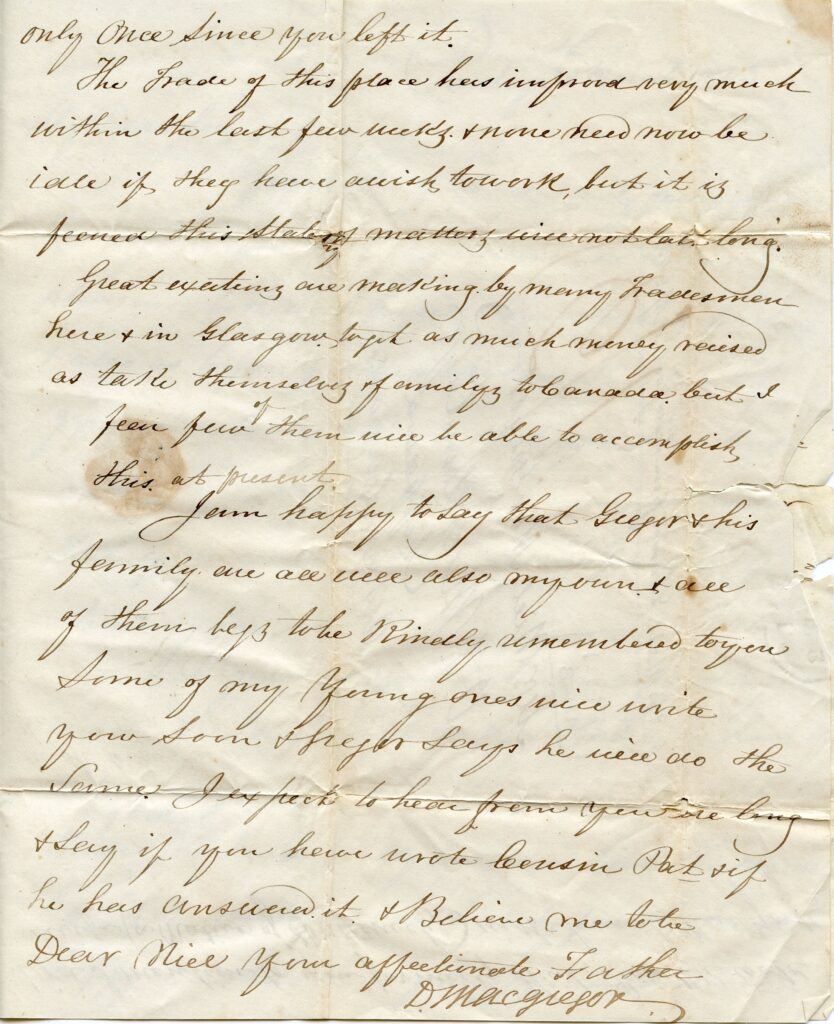 only Once Since you left it.
The Trade of this place has improved very much
within the last few weeks. & none need now be
idle if they have a wish to work, but it is
feared this state of matters will not last long.
Great exations are making by many Tradesmen
here & in Glasgow to get as much money raised
as take themselves & familys to Canada. but I
fear few of them will be able to accomplish
this. at present.
I am happy to Say that Gregor & his
fammily are all well also my own. & all
of them begs to be Kindly remembered to you
Some of my Young ones will write
you Soon & Gregor Says he will do the
Same. I expect to hear from you ere long
& Say if you have wrote Cousin Pat & if
he has answered it. & Believe me to be
Dear Niel your affectionate Father
D. Macgregor